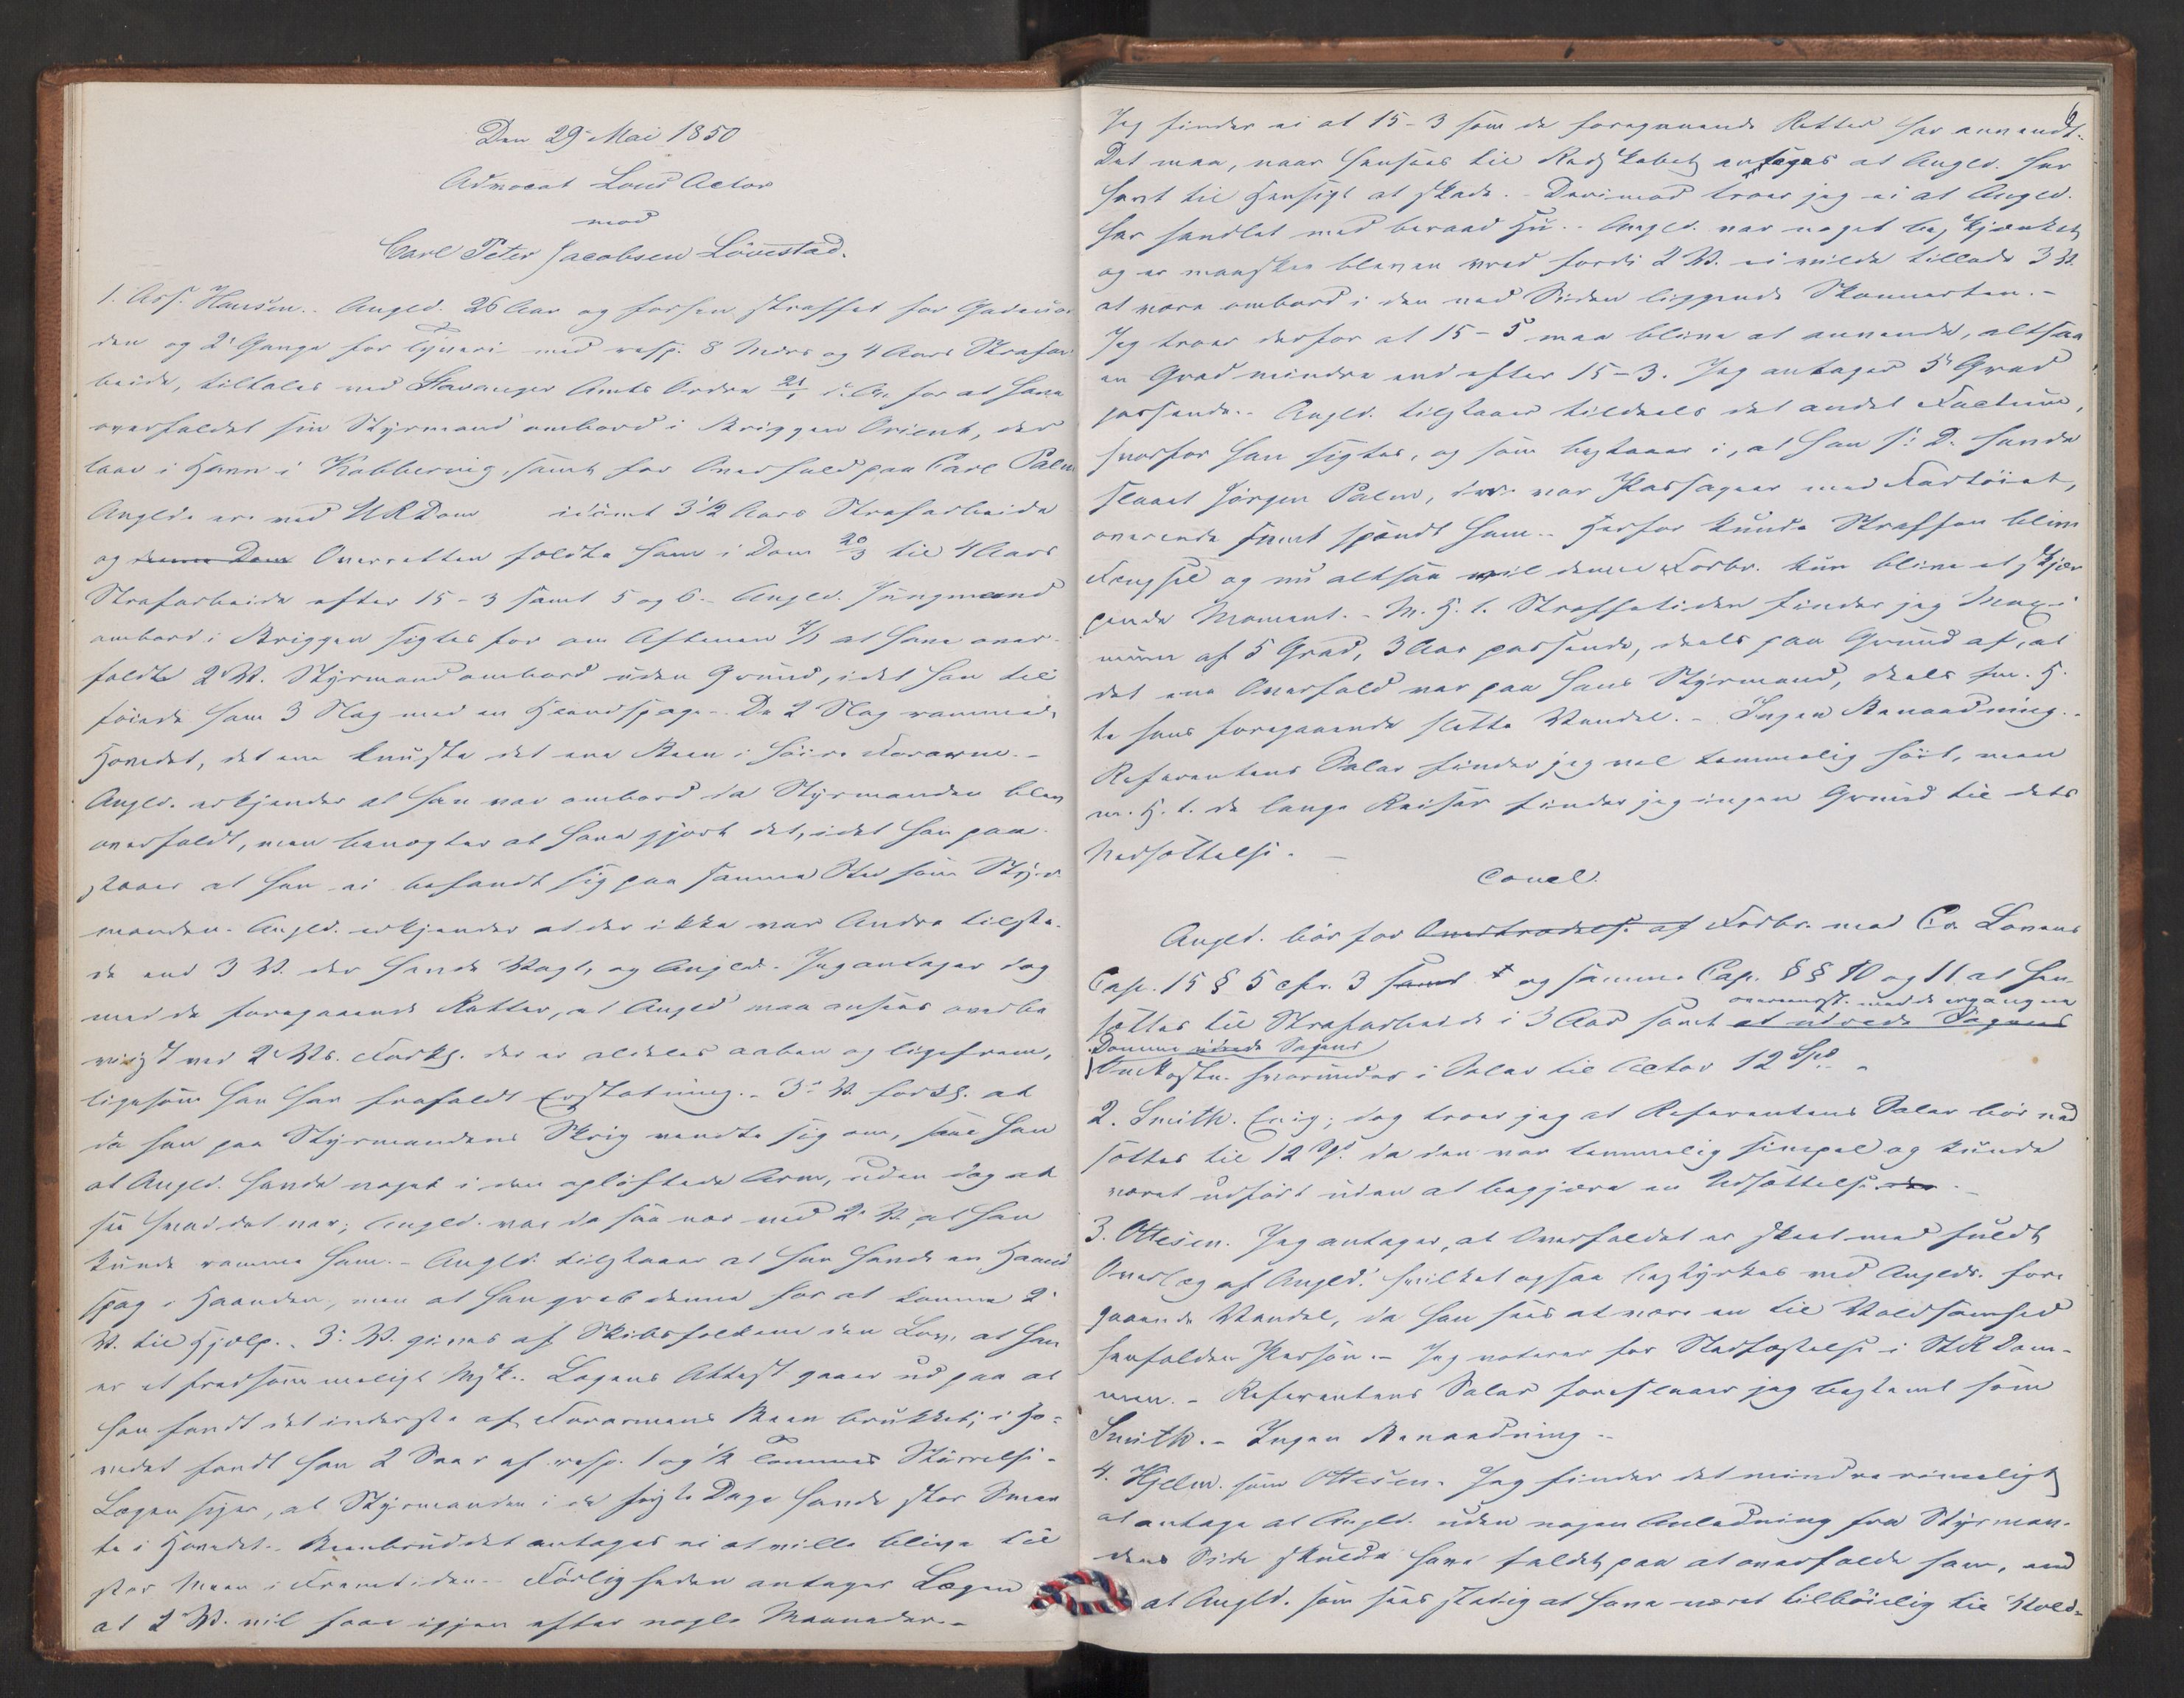 Den 29 Mai 1850
Advocat Lous Actor
mod
Carl Peter Jacobsen Lövestad.
1. Ass. Hansen. Angkl. 26 Aar og forhen straffet for Gadeuor
den og 2 Gange for Tyveri med resp. 8 Mdrs og 4 Aars Strafar
beide, tiltales ved Stavanger Amts Ordre 21/1 d. A. for at have
overfaldet sin Styrmand ombord i Briggen Orient, der
laae i Havn i Kobbervig, samt for Overfald paa Carl Palm
Angkl. er ved URDom idömt 3 1/2 Aars Strafarbeide
og denne Dom Overretten fældte ham i Dom 20/3 til 4 Aars
Strafarbeide efter 15-3 samt 5 og 6. Angkl. Jungmand
ombord i Briggen sigtes for om Aftenen 7/1 at have over-
faldt 2 V. Styrmand ombord uden Grund, idet han til
föiede ham 3 Slag med en Haandspage. De 2 Slag rammede
Hovedet, det ene knuste det ene Been i höire Forarm.
Angkl. erkjender at han var ombord da Styrmanden blev
overfaldt, men benegter at have gjort det, idet han paa
staaer at han ei befandt sig paa samme Sted som Styr
manden. Angkl. erkjender at der ikke var Andre tilste-
de end 3 V. der havde Vagt, og Angkl. Jeg antager dog
med de foregaaende Retter, at Angkl. maa ansees overbe
viist ved 2 Vs. Forkl. der er aldeles aaben og ligefrem,
ligesom han har frafaldt Erstatning. 3 V. forkl. at
da han paa Styrmandens Skrig vendte sig om, saae han
at Angkl. havde noget i den oplöftede Arm, uden dog at
see hvad det var; Angkl. var da saa nær ved 2 V. at han
kunde ramme ham. Angkl. tilstaaer at han havde en Haand
spag i Haanden, men at han greb denne for at komme 2
V. til Hjælp. 3 V. gives af Skibsfolkene den Lov, at han
er et fredsommeligt Msk. Lægens Attest gaaer ud paa at
han fandt det inderste af Forarmens Been brukket; i Ho-
vedet fandt han 2 Saar af resp. 1 og 1/2 Tommes Störrelse.
Lægen siger, at Styrmanden i de förste Dage havde stor Smer
te i Hovedet. Beenbruddet antages ei at ville blive til
stor Meen i Fremtiden. Förligheden antager Lægen
at 2 V. vil faae igjen efter nogle Maaneder.
6
Jeg finder ei at 15-3 som de foregaaende Retter har anvendt.
Det maa, naar hensees til Redskabet antages at Angkl. har
havt til Hensigt at skade. Derimod troer jeg ei at Angkl.
har handlet med beraad Hu. Angkl. var noget beskjænket
og er maaskee bleven vred fordi 2 V. ei vilde tillade 3 V.
at være ombord i den ved Siden liggende Skonnerten.
Jeg troer derfor at 15-5 maa blive at anvende, altsaa
en Grad mindre end efter 15-3. Jeg antager 5 Grad
passende. Angkl. tilstaaer tildeels det andet Factum,
hvorfor han sigtes, og som bestaaer i, at han s. D. havde
slaaet Jörgen Palm, der var Passageer med Fartöiet,
overende samt spændt ham. Herfor kunde Straffen blive
Fængsel og nu altsaa vil denne Forbr. kun blive et skjær
pende Moment. M. H. t. Straffetiden finder jeg Maxi-
mum af 5 Grad, 3 Aar passende, deels paa Grund af, at
det ene Overfald var paa hans Styrmand, deels m. H.
t. hans foregaaende slette Vandel. Ingen Benaadning.
Referentens Salær finder jeg vel temmelig höit, men
m. H. t. de lange Reiser finder jeg ingen Grund til dets
Nedsættelse.
Concl.
Angkl. bör for Overtrædelse af Forbr. mod Cr. Lovens
Cap. 15 § 5 cfr. 3 samt og samme Cap. §§ 10 og 11 at hen-
sættes til Strafarbeide i 3 Aar samt at udrede Sagens
overeensst. med de ergangne
Domme udrede Sagens
Omkostn. herunder i Salær til Actor 12 Spd.
2. Smith. Enig; dog troer jeg at Referentens Salær bör ned
sættes til 12 Spd. da den var temmelig simpel og kunde
været udfört uden at begjære en Udsættelse.
3. Ottesen. Jeg antager, at Overfaldet er skeet med fuldt
Overlæg af Angkl. hvilket ogsaa bestyrkes ved Angkls. fore
gaaende Vandel, da han sees at være en til Voldsomhed
henfalden Person. Jeg voterer for Stadfæstelse i StRDom-
men. Referentens Salær foreslaaer jeg bestemt som
Smith. Ingen Benaadning.
4. Hjelm. som Ottesen. Jeg finder det mindre rimeligt
at antage at Angkl. uden nogen Anledning fra Styrman-
dens Side skulde have faldet paa at overfalde ham, end
at Angkl. som sees stedig at have været tilböielig til Vold-